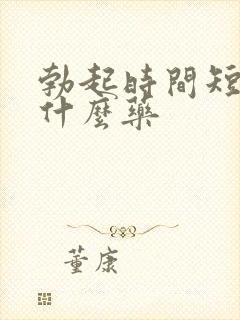 勃起時間短
什麼藥
董康